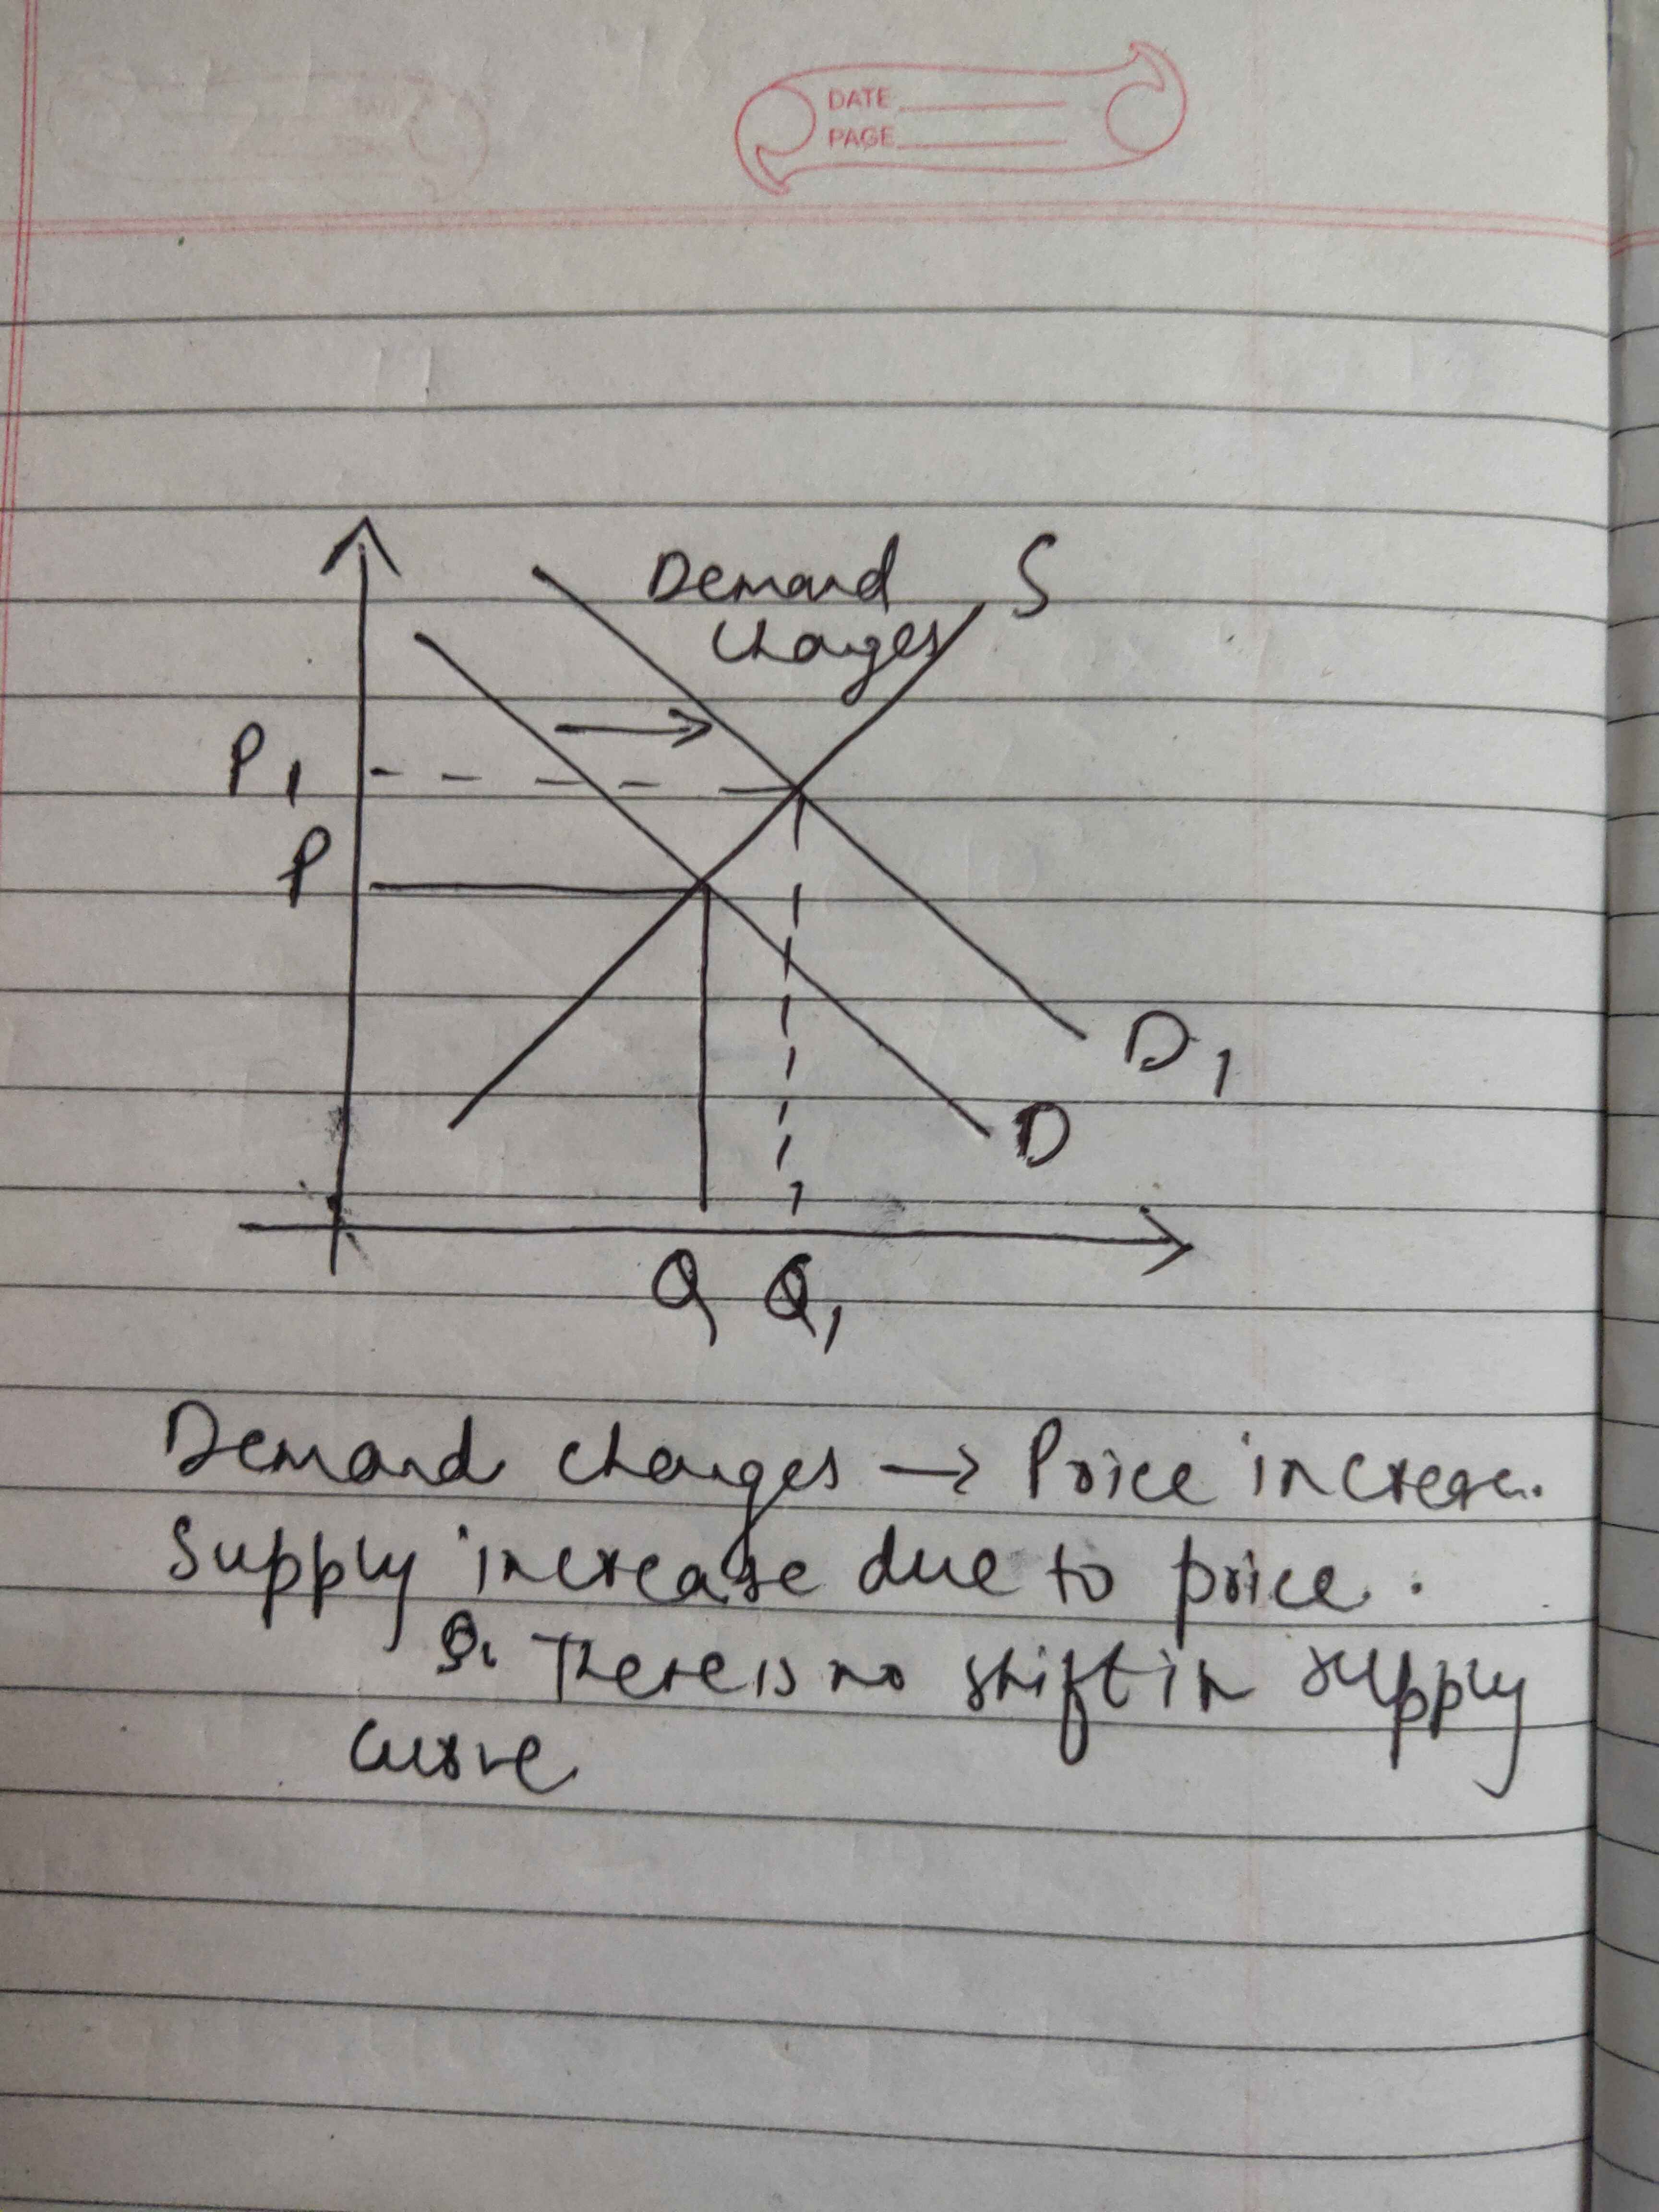 DATE
PAGE
Demand S
Changes
P1
P
D1
D
Q Q1
Demand changes → Price increase.
Supply increase due to price.
There is no shift in supply
curve